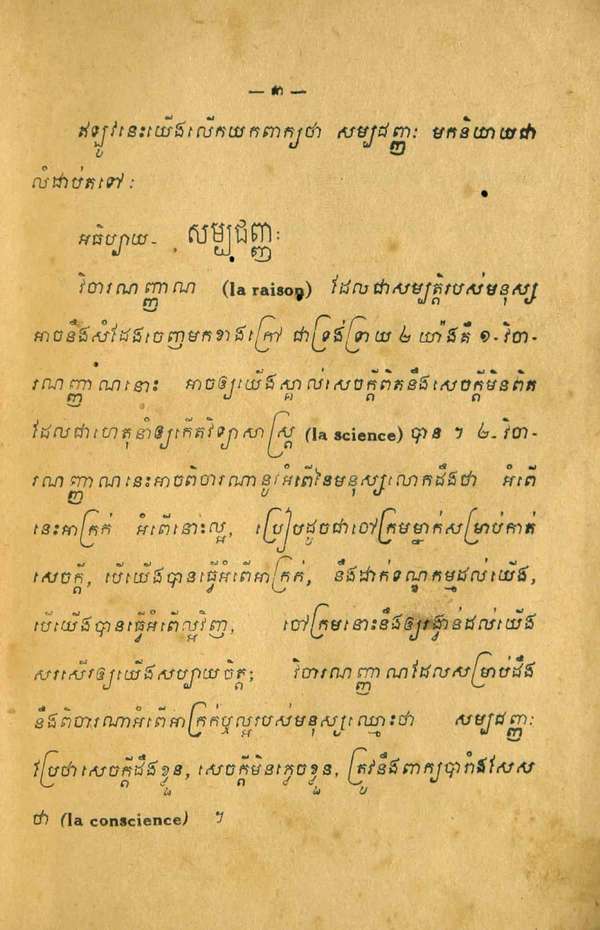 — ៣ —
ឥឡូវនេះយើងលើកយកពាក្យថា សម្បជញ្ញៈ មកនិយាយជា
លំដាប់តទៅ :
អធិប្បាយ- សម្បជញ្ញៈ
វិចារណញ្ញាណ (la raison) ដែលជាសម្បត្តិរបស់មនុស្ស
អាចនឹងសំដែងចេញមកខាងក្រៅ ជាទ្រង់ទ្រាយ ២ យ៉ាងគឺ ១- វិចា-
រណញ្ញាណនោះ អាចឲ្យយើងស្គាល់សេចក្ដីពិតនឹងសេចក្ដីមិនពិត
ដែលជាហេតុនាំឲ្យកើតវិទ្យាសាស្ត្រ (la science) បាន ។ ២- វិចា-
រណញ្ញាណនេះអាចពិចារណានូវអំពើនៃមនុស្សលោកដឹងថា អំពើ
នេះអាក្រក់ អំពើនោះល្អ, ប្រៀបដូចជាចៅក្រមម្នាក់សម្រាប់កាត់
សេចក្ដី, បើយើងបានធ្វើអំពើអាក្រក់, នឹងដាក់ទណ្ឌកម្មដល់យើង,
បើយើងបានធ្វើអំពើល្អវិញ, ចៅក្រមនោះនឹងឲ្យរង្វាន់ដល់យើង
សរសើរឲ្យយើងសប្បាយចិត្ត; វិចារណញ្ញាណដែលសម្រាប់ដឹង
នឹងពិចារណាអំពើអាក្រក់ឬល្អរបស់មនុស្សឈ្មោះថា សម្បជញ្ញៈ
ប្រែថាសេចក្ដីដឹងខ្លួន, សេចក្ដីមិនភ្លេចខ្លួន, ត្រូវនឹងពាក្យបារាំងសែស
ថា (la conscience) ។